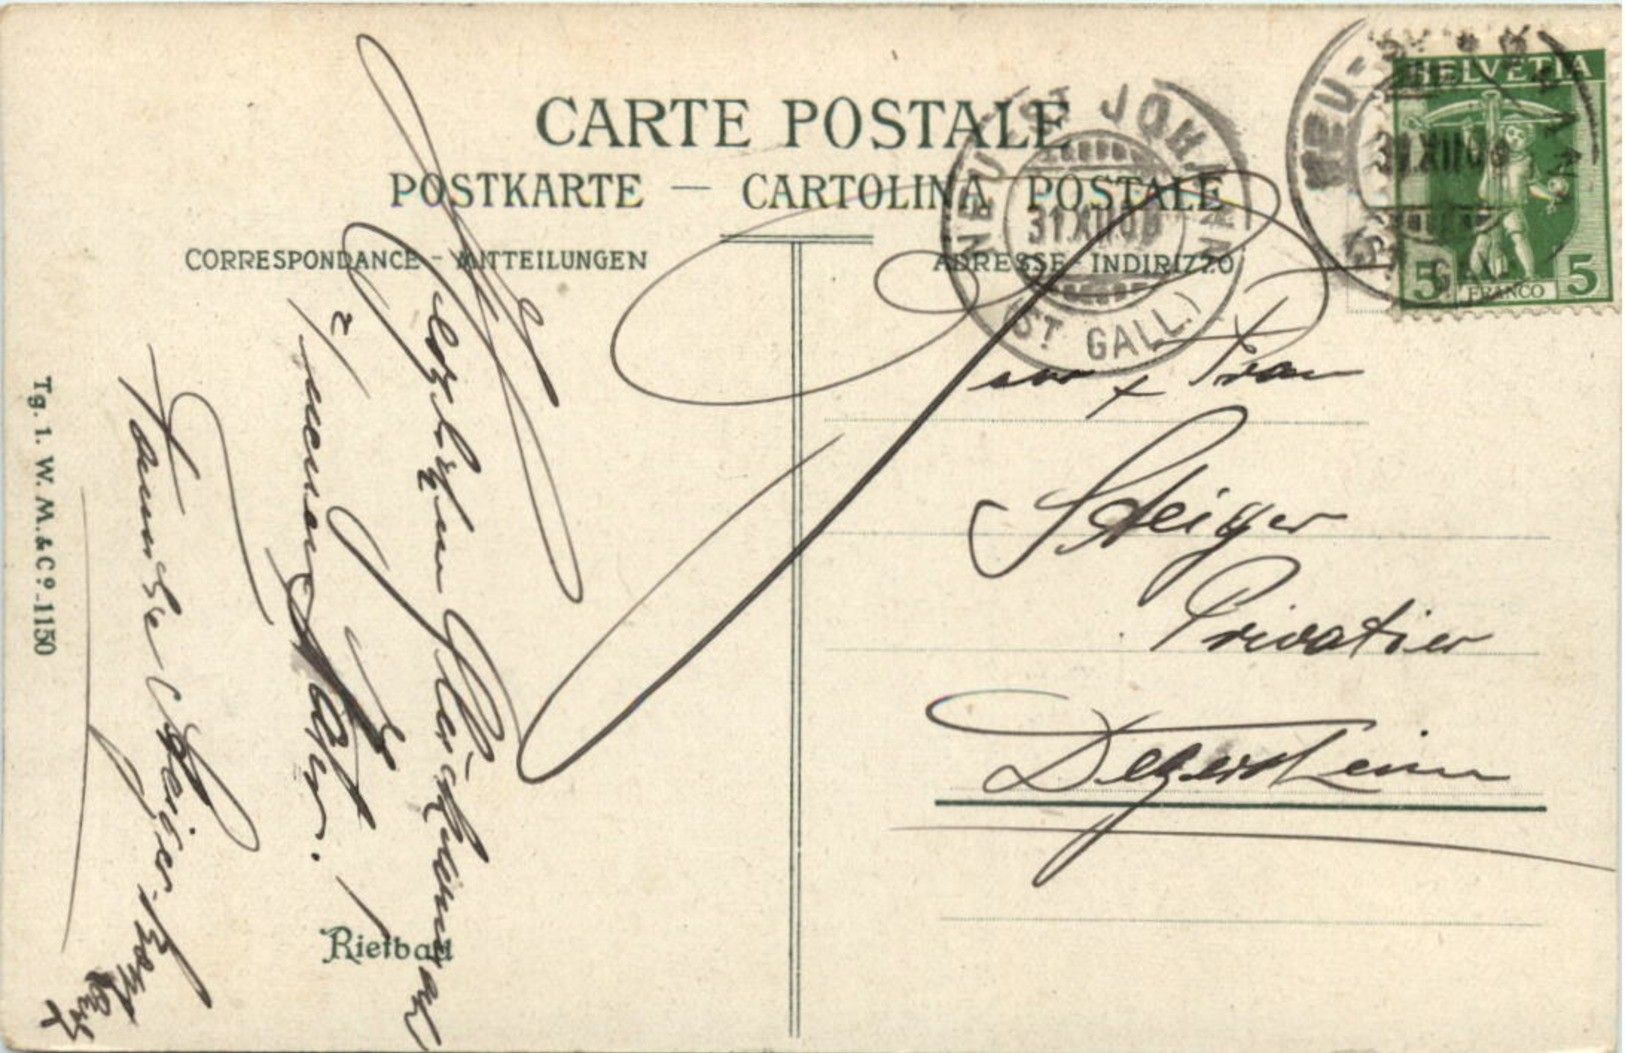 CARTE POSTALE
POSTKARTE — CARTOLINA POSTALE
CORRESPONDANCE - MITTEILUNGEN
ADRESSE - INDIRIZZO
NEU-ST. JOHANN
31.XII.09
(ST. GALL.)
HELVETIA
5 FRANCO 5
NEU-ST. JOHANN
31.XII.09
(ST. GALL.)
Herzlichen Glückwunsch
z. neuen Jahr!
Familie Steiger
Frau
Steiger
Privatier
Degersheim
Rietbad
Tg. 1. W. M. & Co. - 1150